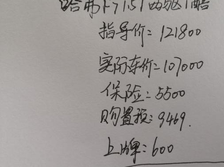 哈弗F7 1.5T 两驱
指导价=121800
实际车价=107000
保险=5500
购置税=9469.
上牌=600